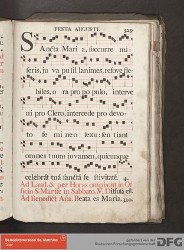 FESTA AUGUSTI. 129
SAncta Mari a, succurre mi-
seris, ju va pusil lanimes, refove fle-
biles, o ra pro po pulo, interve
ni pro Clero, intercede pro devo-
to fe mi neo sexu: sen tiant
omnes tuum juvamen, quicumque
celebrant tuã sanctã fe stivitatẽ.
Ad Laud. & per Horas omnia ut in Of-
ficio S. Mariæ in Sabbato.
Ad Benedict. Ana. Beata es Maria,